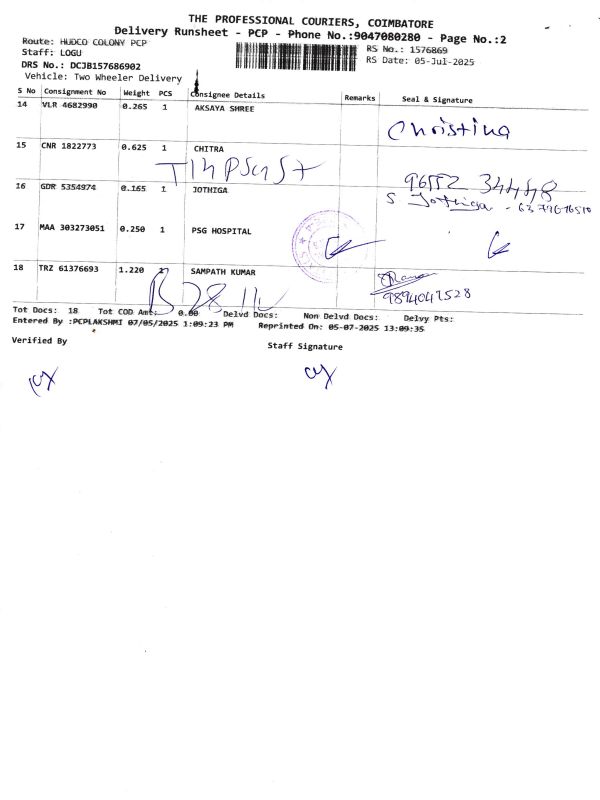 THE PROFESSIONAL COURIERS, COIMBATORE
Delivery Runsheet - PCP - Phone No.:9047080280 - Page No.:2
Route: HUDCO COLONY PCP
RS No.: 1576869
Staff: LOGU
RS Date: 05-Jul-2025
DRS No.: DCJB157686902
Vehicle: Two Wheeler Delivery
S No Consignment No Weight PCS Consignee Details Remarks Seal & Signature
14 VLR 4682990 0.265 1 AKSAYA SHREE
Christina
15 CNR 1822773 0.625 1 CHITRA
96552 34448
16 GDR 5354974 0.165 1 JOTHIGA
S Jothiga
17 MAA 303273051 0.250 1 PSG HOSPITAL
18 TRZ 61376693 1.220 1 SAMPATH KUMAR
Tot Docs: 18 Tot COD Amt: 0.00 Delvd Docs: Non Delvd Docs: Delvy Pts:
Entered By :PCPLAKSHMI 07/05/2025 1:09:23 PM Reprinted On: 05-07-2025 13:09:35
Verified By
Staff Signature